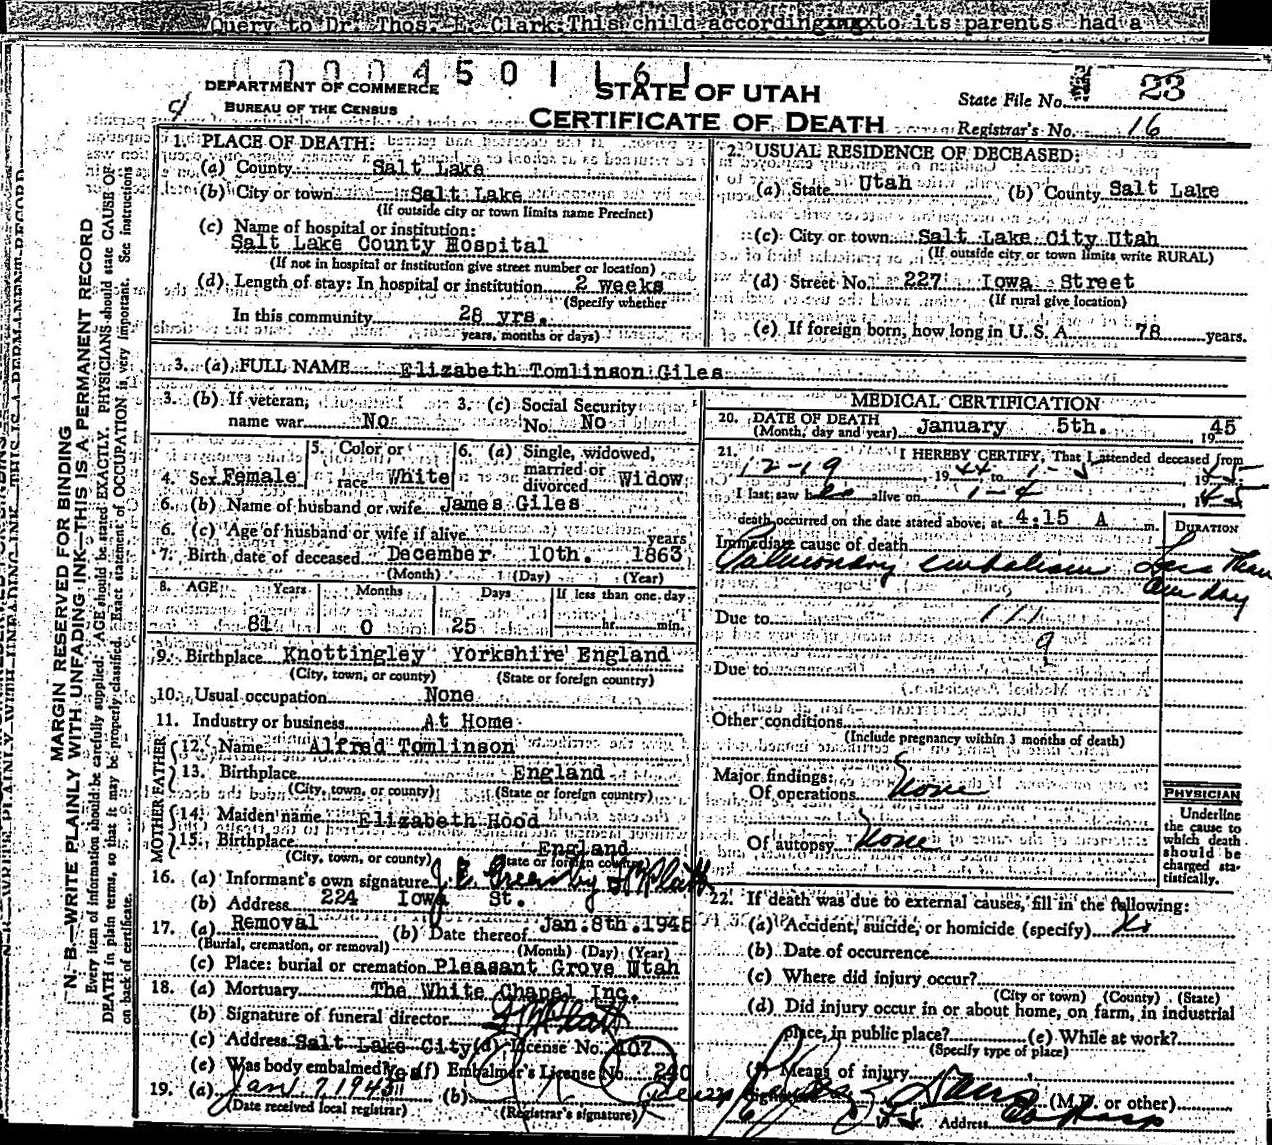 Query to Dr. Thos. F. Clark This child according to its parents had a
0 0 0 4 5 0 1 1 6 1
DEPARTMENT OF COMMERCE
BUREAU OF THE CENSUS
STATE OF UTAH
CERTIFICATE OF DEATH
State File No. 23
Registrar's No. 16
MARGIN RESERVED FOR BINDING
N. B.—WRITE PLAINLY WITH UNFADING INK—THIS IS A PERMANENT RECORD
Every item of information should be carefully supplied. AGE should be stated EXACTLY. PHYSICIANS should state CAUSE OF
DEATH in plain terms, so that it may be properly classified. Exact statement of OCCUPATION is very important. See instructions
on back of certificate.
1. PLACE OF DEATH:
(a) County Salt Lake
(b) City or town Salt Lake
(If outside city or town limits name Precinct)
(c) Name of hospital or institution:
Salt Lake County Hospital
(If not in hospital or institution give street number or location)
(d) Length of stay: In hospital or institution 2 weeks
(Specify whether
In this community 28 yrs.
years, months or days)
2. USUAL RESIDENCE OF DECEASED:
(a) State Utah (b) County Salt Lake
(c) City or town Salt Lake City Utah
(If outside city or town limits write RURAL)
(d) Street No. 227 Iowa Street
(If rural give location)
(e) If foreign born, how long in U. S. A. 78 years.
3. (a) FULL NAME Elizabeth Tomlinson Giles
3. (b) If veteran, name war No
3. (c) Social Security No. No
4. Sex Female
5. Color or race White
6. (a) Single, widowed, married or divorced Widow
6. (b) Name of husband or wife James Giles
6. (c) Age of husband or wife if alive years
7. Birth date of deceased December 10th. 1863
(Month) (Day) (Year)
8. AGE Years Months Days If less than one day
81 0 25 hr. min.
9. Birthplace Knottingley Yorkshire England
(City, town, or county) (State or foreign country)
10. Usual occupation None
11. Industry or business At Home
FATHER
12. Name Alfred Tomlinson
13. Birthplace England
(City, town, or county) (State or foreign country)
MOTHER
14. Maiden name Elizabeth Hood
15. Birthplace England
(City, town, or county) (State or foreign country)
16. (a) Informant's own signature
(b) Address 224 Iowa St.
17. (a) Removal (b) Date thereof Jan. 8th. 1945
(Burial, cremation, or removal) (Month) (Day) (Year)
(c) Place: burial or cremation Pleasant Grove Utah
18. (a) Mortuary The White Chapel Inc.
(b) Signature of funeral director
(c) Address Salt Lake City (d) License No. 107
(e) Was body embalmed Yes (f) Embalmer's License No. 240
19. (a) Jan 7, 1945 (b)
(Date received local registrar) (Registrar's signature)
MEDICAL CERTIFICATION
20. DATE OF DEATH
(Month, day and year) January 5th. 19 45
21. I HEREBY CERTIFY, That I attended deceased from
12-19 19 44 to 1-5 19 45
I last saw her alive on 1-4 19 45
death occurred on the date stated above, at 4:15 A m. DURATION
Immediate cause of death
Pulmonary embolism Less than
one day
Due to 111
9
Due to
Other conditions
(Include pregnancy within 3 months of death)
Major findings:
Of operations None
Of autopsy None
PHYSICIAN
Underline
the cause to
which death
should be
charged sta-
tistically.
22. If death was due to external causes, fill in the following:
(a) Accident, suicide, or homicide (specify) No
(b) Date of occurrence
(c) Where did injury occur?
(City or town) (County) (State)
(d) Did injury occur in or about home, on farm, in industrial
place, in public place? (e) While at work?
(Specify type of place)
(f) Means of injury
Signature (M.D. or other)
Address Co Hosp